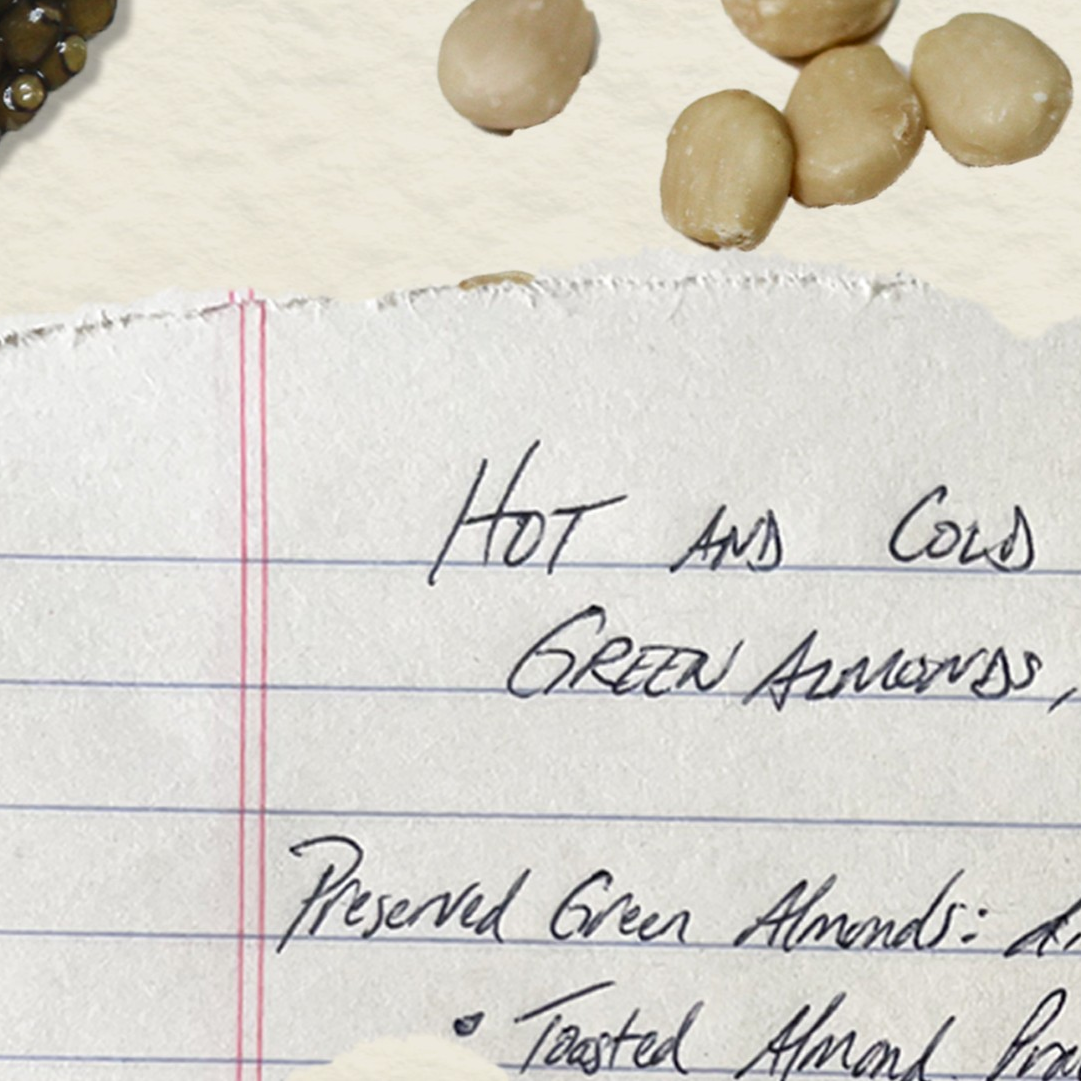 HOT AND COLD
GREEN ALMONDS,
Preserved Green Almonds:
• Toasted Almond